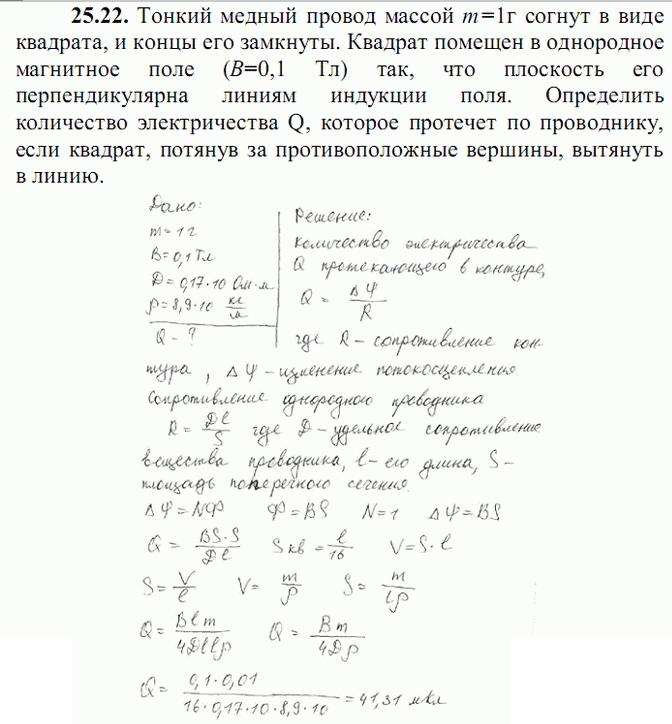 25.22. Тонкий медный провод массой m=1г согнут в виде
квадрата, и концы его замкнуты. Квадрат помещен в однородное
магнитное поле (B=0,1 Тл) так, что плоскость его
перпендикулярна линиям индукции поля. Определить
количество электричества Q, которое протечет по проводнику,
если квадрат, потянув за противоположные вершины, вытянуть
в линию.
Дано:
m=1г
B=0,1Тл
D=0,17·10 Ом·м
ρ=8,9·10 кг/м
Q-?
Решение:
Количество электричества
Q протекающего в контуре,
Q = ΔΨ/R
где R-сопротивление кон-
тура, ΔΨ-изменение потокосцепления
Сопротивление однородного проводника
R = Dl/S где D-удельное сопротивление
вещества проводника, l-его длина, S-
площадь поперечного сечения.
ΔΨ=NФ Ф=BS N=1 ΔΨ=BS
Q = BS·S/Dl Sкв = l/16 V=S·l
S=V/l V= m/ρ S= m/lρ
Q= Blm/4Dllρ Q= Bm/4Dρ
Q= 0,1·0,01/16·0,17·10·8,9·10 =41,31 мкл